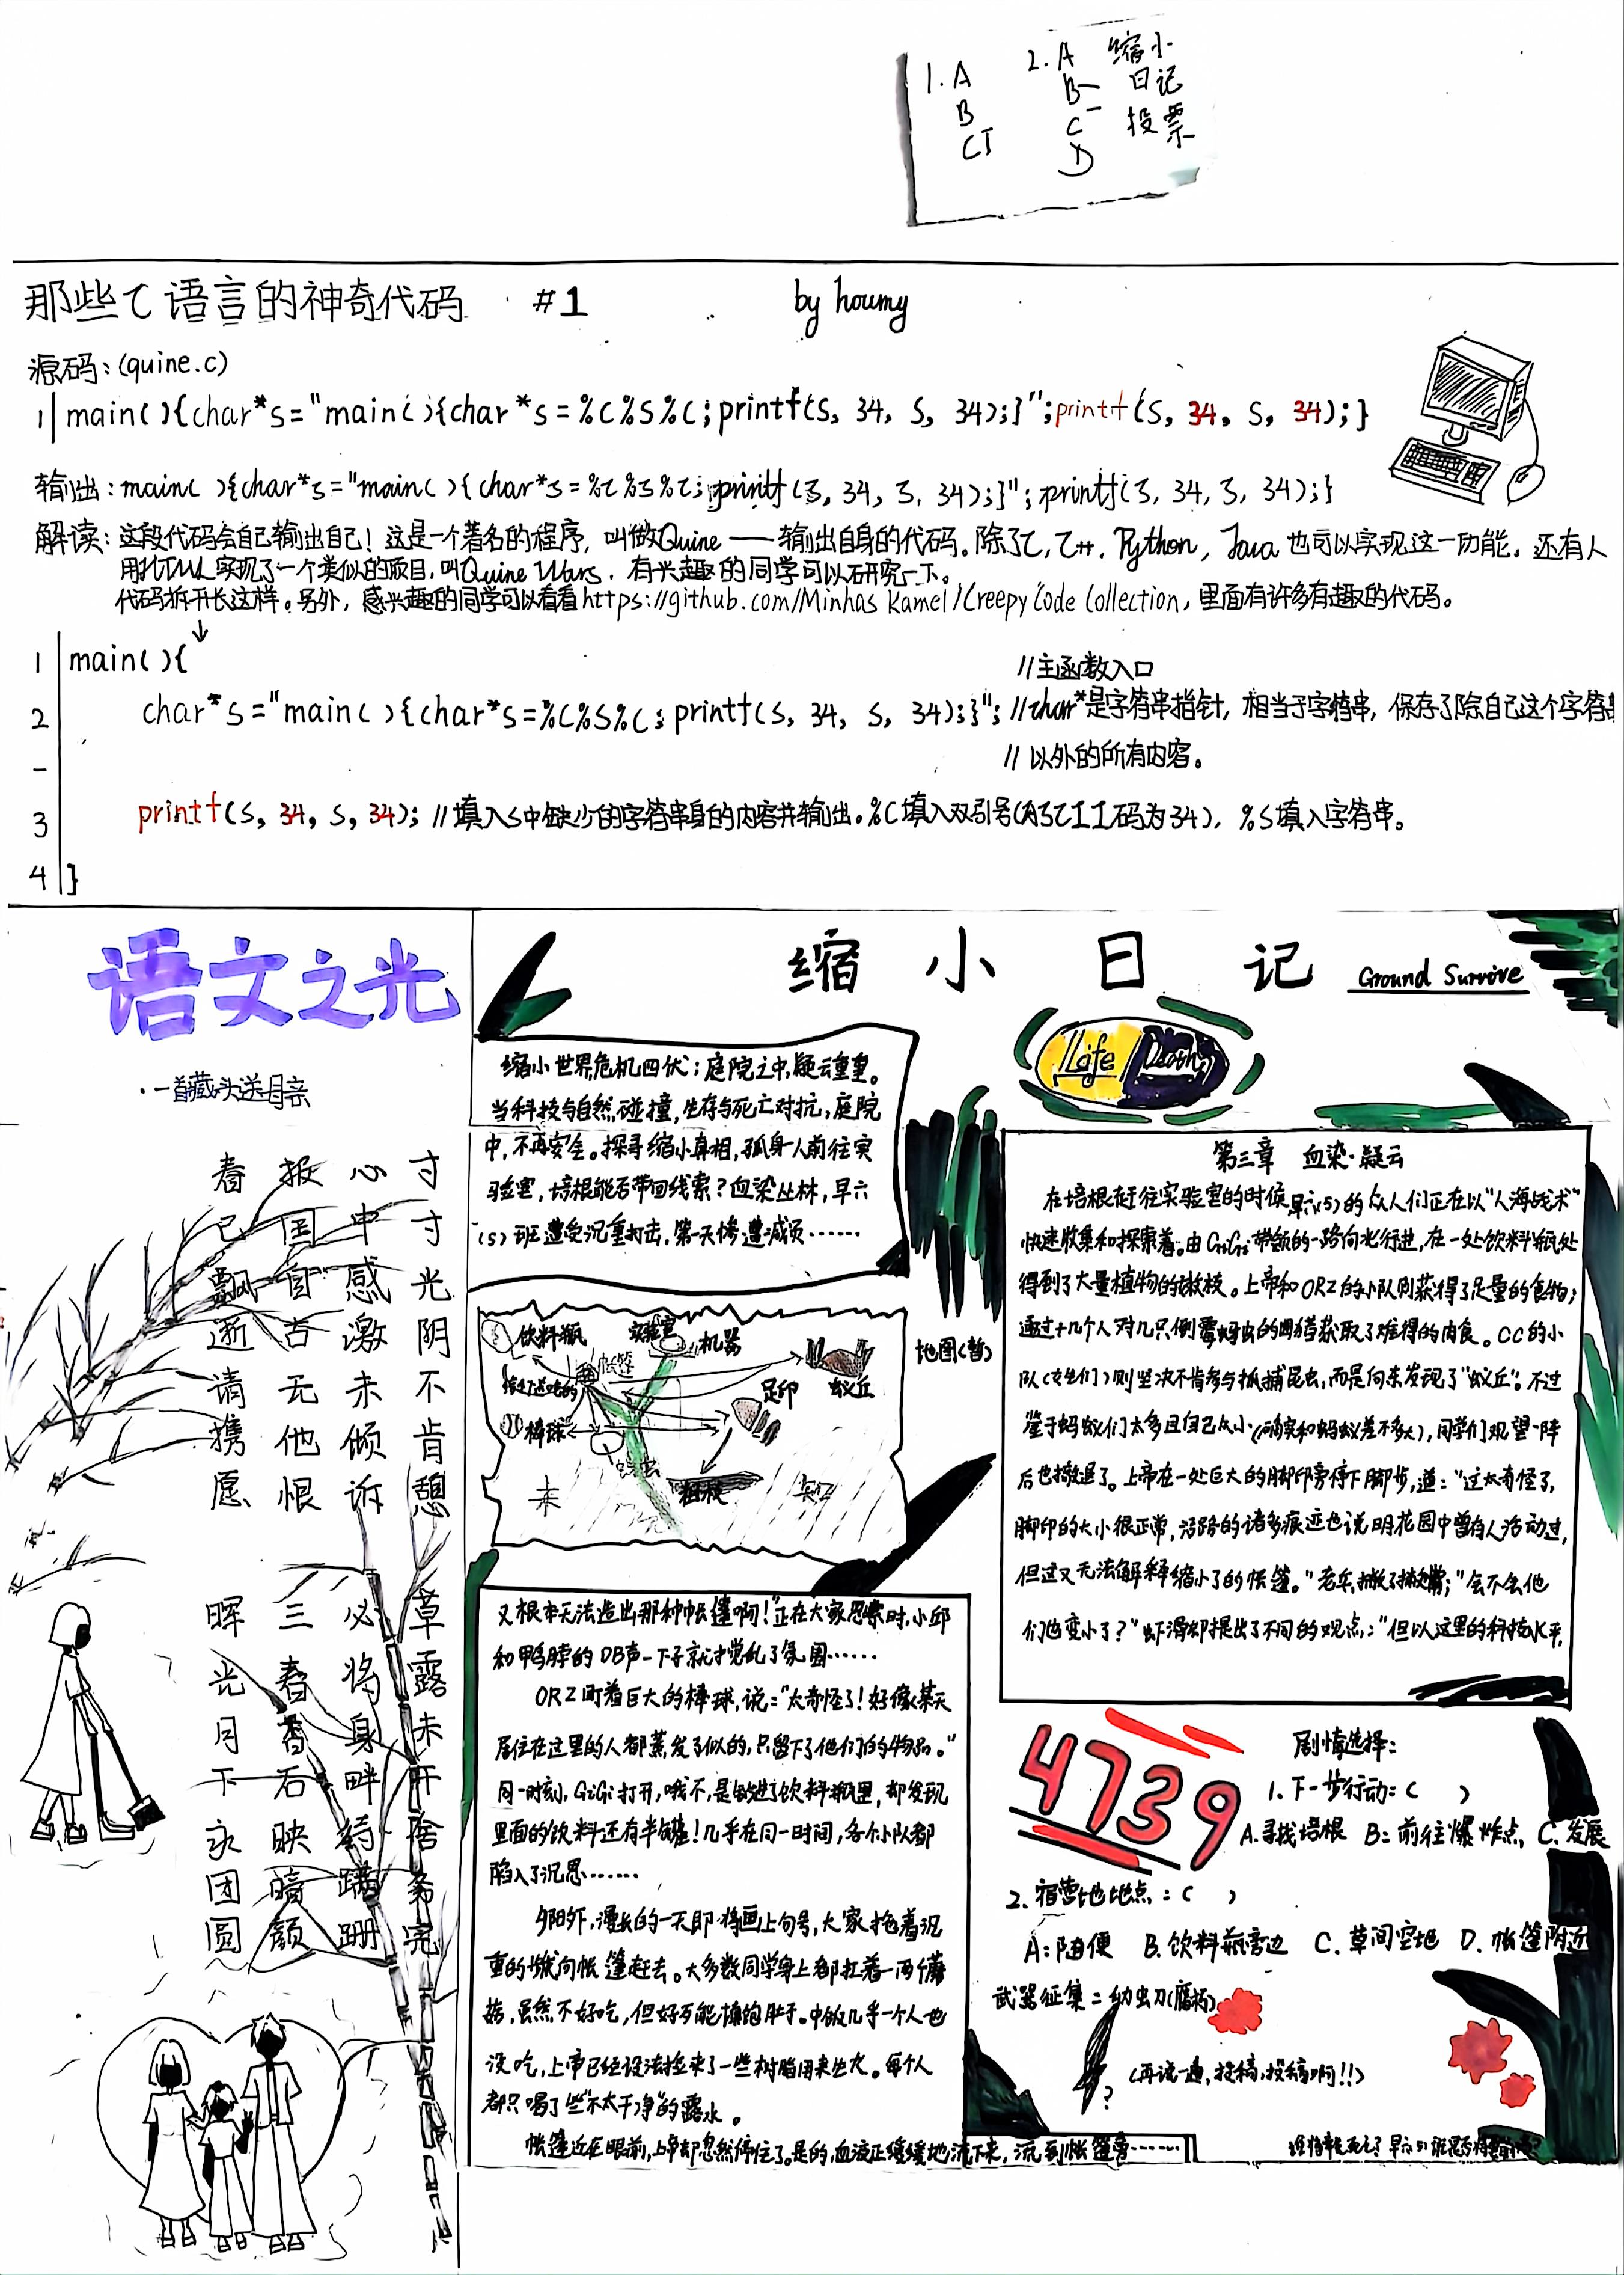 1.A
B
C
2.A
B
C
D
缩小
日记
投票
那些C语言的神奇代码 #1 by houmy
源码:(quine.c)
1 main(){char*s="main(){char*s=%c%s%c;printf(s, 34, s, 34);}";printf(s, 34, s, 34);}
输出:main(){char*s="main(){char*s=%c%s%c;printf(s, 34, s, 34);}";printf(s, 34, s, 34);}
解读:这段代码会自己输出自己!这是一个著名的程序,叫做Quine——输出自身的代码。除了C,C++,Python,Java也可以实现这一功能。还有人
用HTML实现了一个类似的项目,叫Quine Wars,有兴趣的同学可以研究一下。
代码拆开长这样。另外,感兴趣的同学可以看看https://github.com/MinhasKamel/CreepyCodeCollection,里面有许多有趣的代码。
1 main(){ //主函数入口
2 char*s="main(){char*s=%c%s%c;printf(s, 34, s, 34);}"; //char*是字符串指针,相当于字符串,保存了除自己这个字符串
- //以外的所有内容。
3 printf(s, 34, s, 34); //填入s中缺少的字符串身的内容并输出。%c填入双引号(ASCII码为34),%s填入字符串。
4 }
语文之光
·一首藏头送母亲
寸寸光阴不肯憩
心中感激未倾诉
报国自古无他恨
春已飘逝请携愿
草露未开舍务完
必将身畔药蹒跚
三春香石映暗颜
晖光月下永团圆
缩小日记 Ground Survive
Life Death
缩小世界危机四伏;庭院之中,疑云重重。
当科技与自然碰撞,生存与死亡对抗,庭院
中,不再安全。探寻缩小真相,孤身人前往实
验室,培根能否带回线索?血染丛林,早六
(5)班遭受沉重打击,第一天惨遭减员……
饮料瓶
实验室
机器
帐篷
足印
蚁丘
棒球
地图(暂)
第三章 血染·疑云
在培根赶往实验室的时候,早六(5)的众人们正在以“人海战术”
快速收集和探索着。由GiGi带领的一路向北行进,在一处饮料瓶处
得到了大量植物的嫩枝。上帝和ORZ的小队则获得了足量的食物;
通过十几个人对几只倒霉蚜虫的围猎获取了难得的肉食。CC的小
队(女生们)则坚决不肯参与抓捕昆虫,而是向东发现了“蚁丘”。不过
鉴于蚂蚁们太多且自己太小(确实和蚂蚁差不多大),同学们观望一阵
后也撤退了。上帝在一处巨大的脚印旁停下脚步,道:“这太奇怪了,
脚印的大小很正常,沿路的诸多痕迹也说明花园中曾有人活动过,
但这又无法解释缩小了的帐篷。”老车挠了挠嘴;“会不会他
们也变小了?”虾滑却提出了不同的观点:“但以这里的科技水平,
又根本无法造出那种帐篷啊!”正在大家思索时,小邱
和鸭脖的DB声一下子就打觉乱了氛围……
ORZ盯着巨大的棒球,说:“太奇怪了!好像某天
居住在这里的人都蒸发了似的,只留下了他们的物品。”
同一时刻,GiGi打开,哦不,是钻进了饮料瓶里,却发现
里面的饮料还有半罐!几乎在同一时间,各个小队都
陷入了沉思……
夕阳下,漫长的一天即将画上句号,大家拖着沉
重的步伐向帐篷赶去。大多数同学身上都扛着一两个蘑
菇,虽然不好吃,但好歹能填饱肚子。中饭几乎一个人也
没吃,上帝已经设法捡来了一些树脂用来生火。每个人
都只喝了些“不太干净”的露水。
帐篷近在眼前,上帝却忽然停住了。是的,血液正缓缓地流下来,流到帐篷旁……
4739
剧情选择:
1.下一步行动:( )
A.寻找培根 B:前往爆炸点, C.发展
2.宿营地地点:( )
A:随便 B.饮料瓶旁边 C.草间空地 D.帐篷附近
武器征集:幼虫刀(腐朽)
?
(再说一遍,投稿,投稿啊!!)